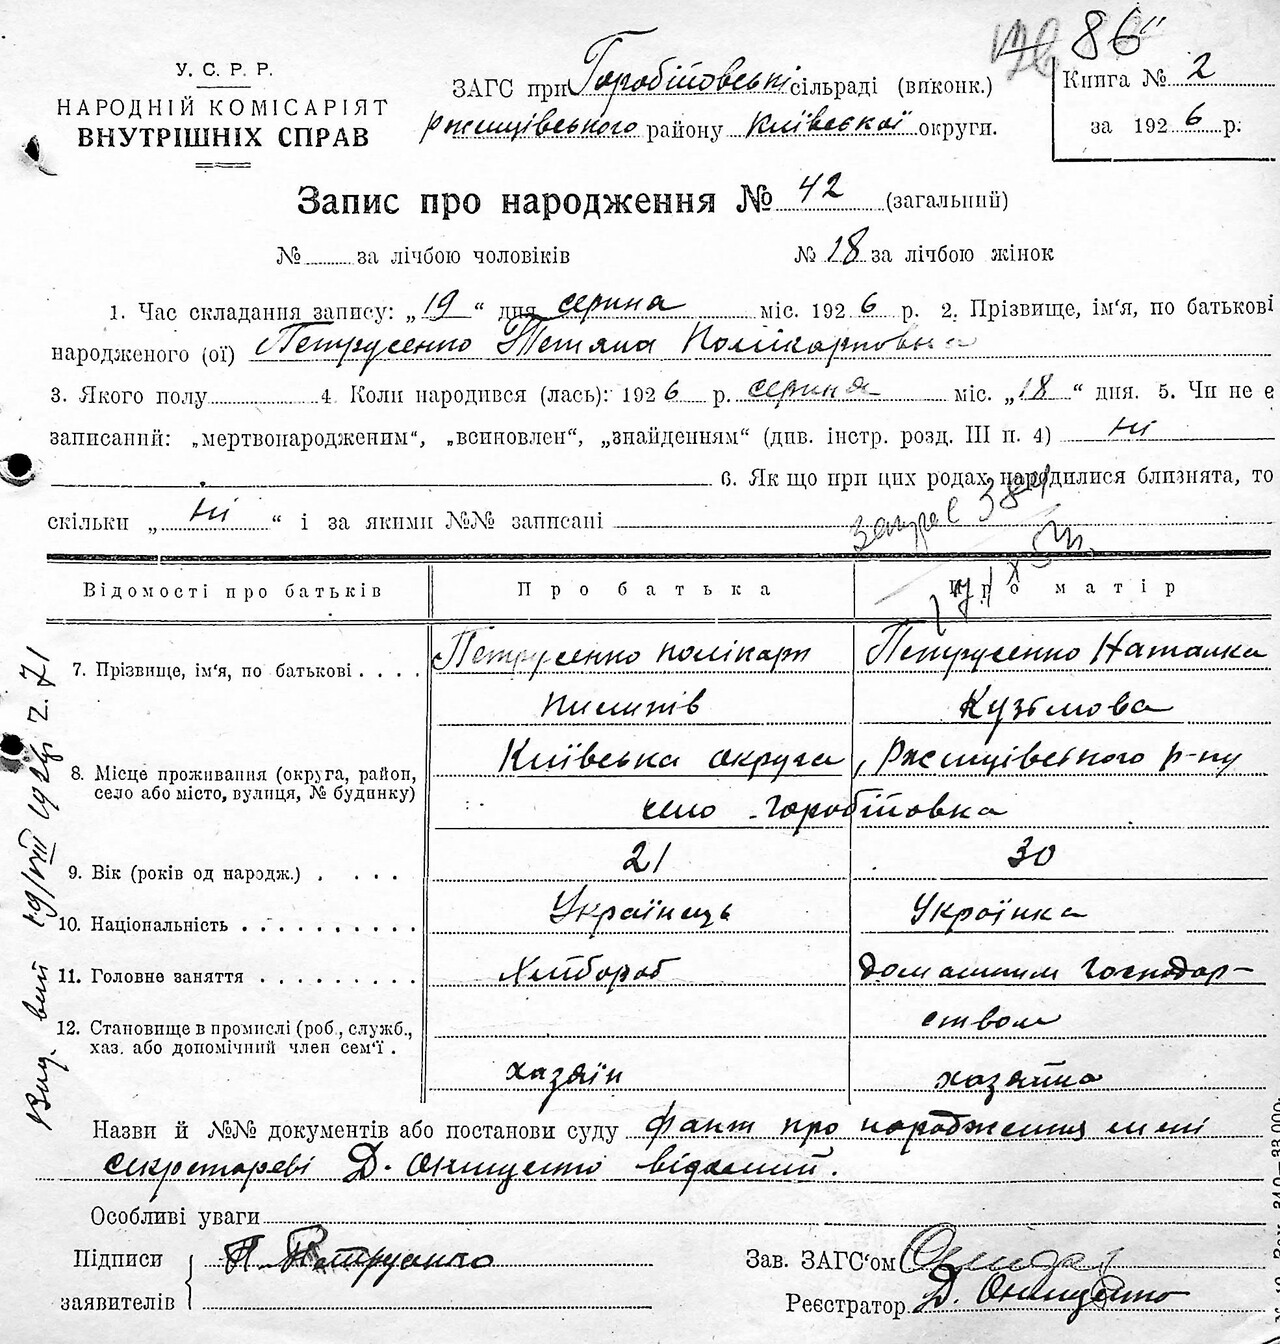 86"
У. С. Р. Р.
НАРОДНІЙ КОМІСАРІЯТ
ВНУТРІШНІХ СПРАВ
ЗАГС при Горобіівські сільраді (виконк.)
Ржищівського району Київської округи.
Книга № 2
за 1926 р.
Запис про народження № 42 (загальний)
№ за лічбою чоловіків № 18 за лічбою жінок
1. Час складання запису: „19“ дня серпна міс. 1926 р. 2. Прізвище, ім'я, по батькові
народженого (ої) Петрусенко Тетяна Полікарповна
3. Якого полу 4. Коли народився (лась): 1926 р. серпня міс. „18“ дня. 5. Чи не є
записаний: „мертвонародженим“, „всиновлен“, „знайденням“ (див. інстр. розд. III п. 4) ні
6. Як що при цих родах народилися близнята, то
скільки „ні“ і за якими №№ записані
Відомості про батьків Про батька Про матір
7. Прізвище, ім'я, по батькові . . . . Петрусенко Полікарп Петрусенко Наталка
Пилипів Кузьмова
8. Місце проживання (округа, район, село або місто, вулиця, № будинку) Київська округа, Ржищівського р-ну
село Горобіївка
9. Вік (років од народж.) . . . . 21 30
10. Національність . . . . . . . . . . Українець Українка
11. Головне заняття . . . . . . . . . Хлібороб домашнім господар-
ством
12. Становище в промислі (роб., служб., хаз. або допомічний член сем'ї . хазяїн хазяйка
Назви й №№ документів або постанови суду факт про народження мені
секретареві Д. Онищенко відомий.
Особливі уваги
Підписи П. Петрусенко
заявителів
Зав. ЗАГС'ом
Реєстратор Д. Онищенко
19/VIII 1926 р. 71